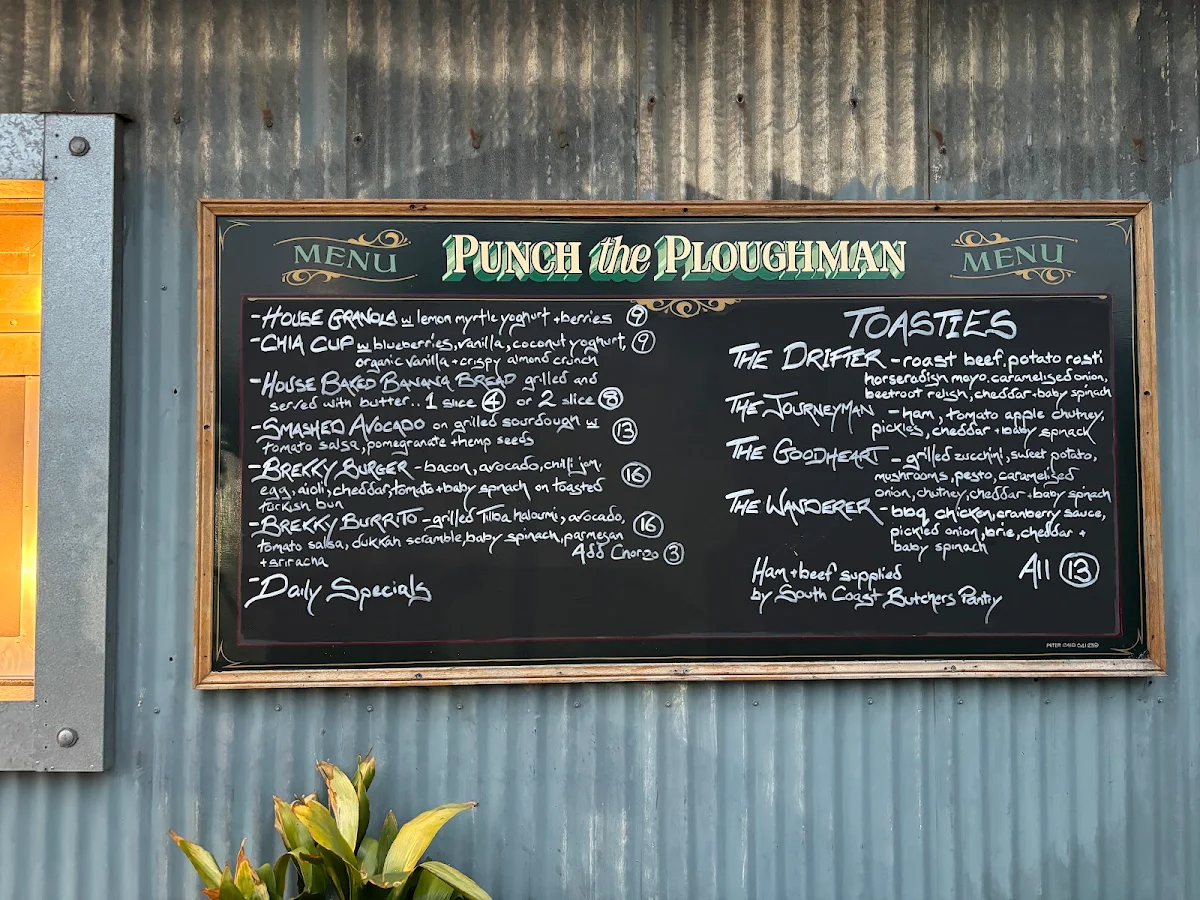 MENU
PUNCH the PLOUGHMAN
MENU
-HOUSE GRANOLA w lemon myrtle yoghurt +berries 9
-CHIA CUP w blueberries, vanilla, coconut yoghurt, 9
organic vanilla + crispy almond crunch
-HOUSE BAKED BANANA BREAD grilled and
served with butter.. 1 slice 4 or 2 slice 8
-SMASHED AVOCADO on grilled sourdough w 13
tomato salsa, pomegranate +hemp seeds
-BREKKY BURGER - bacon, avocado, chilli jam, 16
egg, aioli, cheddar, tomato + baby spinach on toasted
turkish bun
-BREKKY BURRITO - grilled Tilba haloumi, avocado, 16
tomato salsa, dukkah scramble, baby spinach, parmesan
+ sriracha
Add Chorzo 3
-Daily Specials
TOASTIES
THE DRIFTER - roast beef, potato rosti
horseradish mayo, caramelised onion,
beetroot relish, cheddar + baby spinach
THE JOURNEYMAN - ham, tomato apple chutney,
pickles, cheddar + baby spinach
THE GOODHEART - grilled zucchini, sweet potato,
mushrooms, pesto, caramelised
onion, chutney, cheddar + baby spinach
THE WANDERER - bbq chicken, cranberry sauce,
pickled onion, brie, cheddar +
baby spinach
All 13
Ham + beef supplied
by South Coast Butchers Pantry
PETER